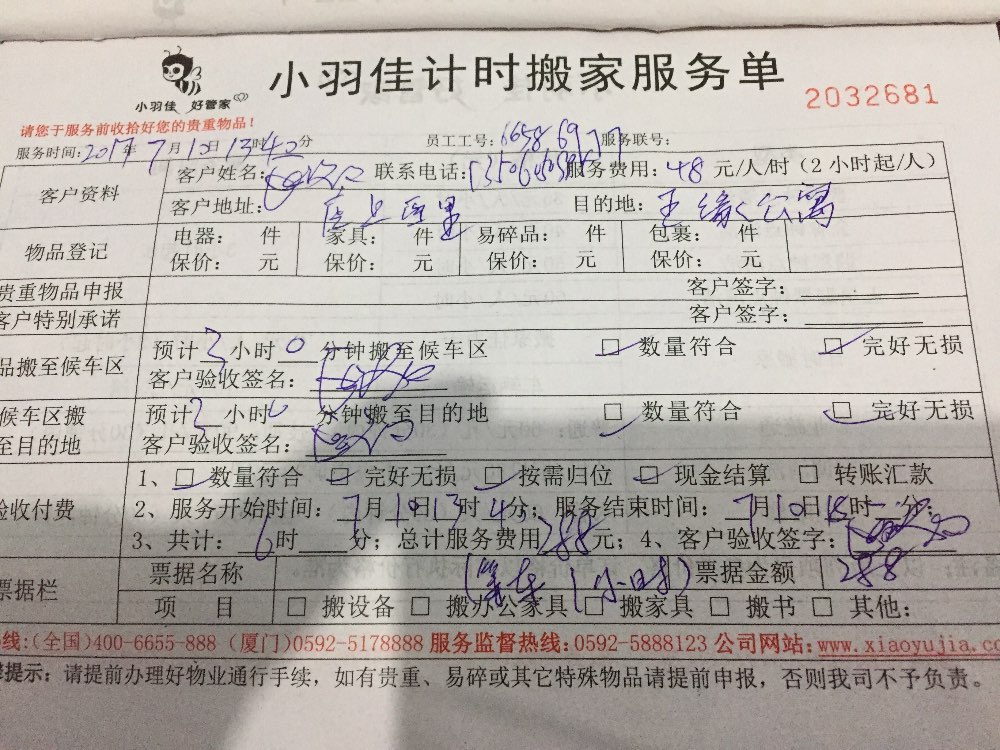 小羽佳 好管家
小羽佳计时搬家服务单
2032681
请您于服务前收拾好您的贵重物品！
服务时间：2017年7月10日13时40分 员工工号： 服务联号：
客户资料 客户姓名： 联系电话： 服务费用：48元/人/时（2小时起/人）
客户地址： 目的地：
物品登记 电器： 件 家具： 件 易碎品： 件 包裹： 件
保价： 元 保价： 元 保价： 元 保价： 元
贵重物品申报 客户签字：
客户特别承诺 客户签字：
品搬至候车区 预计 小时0分钟搬至候车区 □ 数量符合 □ 完好无损
客户验收签名：
候车区搬 预计 小时0分钟搬至目的地 □ 数量符合 □ 完好无损
至目的地 客户验收签名：
验收付费 1、□ 数量符合 □ 完好无损 □ 按需归位 □ 现金结算 □ 转账汇款
2、服务开始时间：7月10日13时 分；服务结束时间：7月10日 时 分；
3、共计：6时 分；总计服务费用288元；4、客户验收签字：
票据栏 票据名称 (小时) 票据金额 288
项 目 □ 搬设备 □ 搬办公家具 □ 搬家具 □ 搬书 □ 其他：
线：(全国)400-6655-888 (厦门)0592-5178888 服务监督热线：0592-5888123 公司网站：www.xiaoyujia.co
提示：请提前办理好物业通行手续，如有贵重、易碎或其它特殊物品请提前申报，否则我司不予负责。